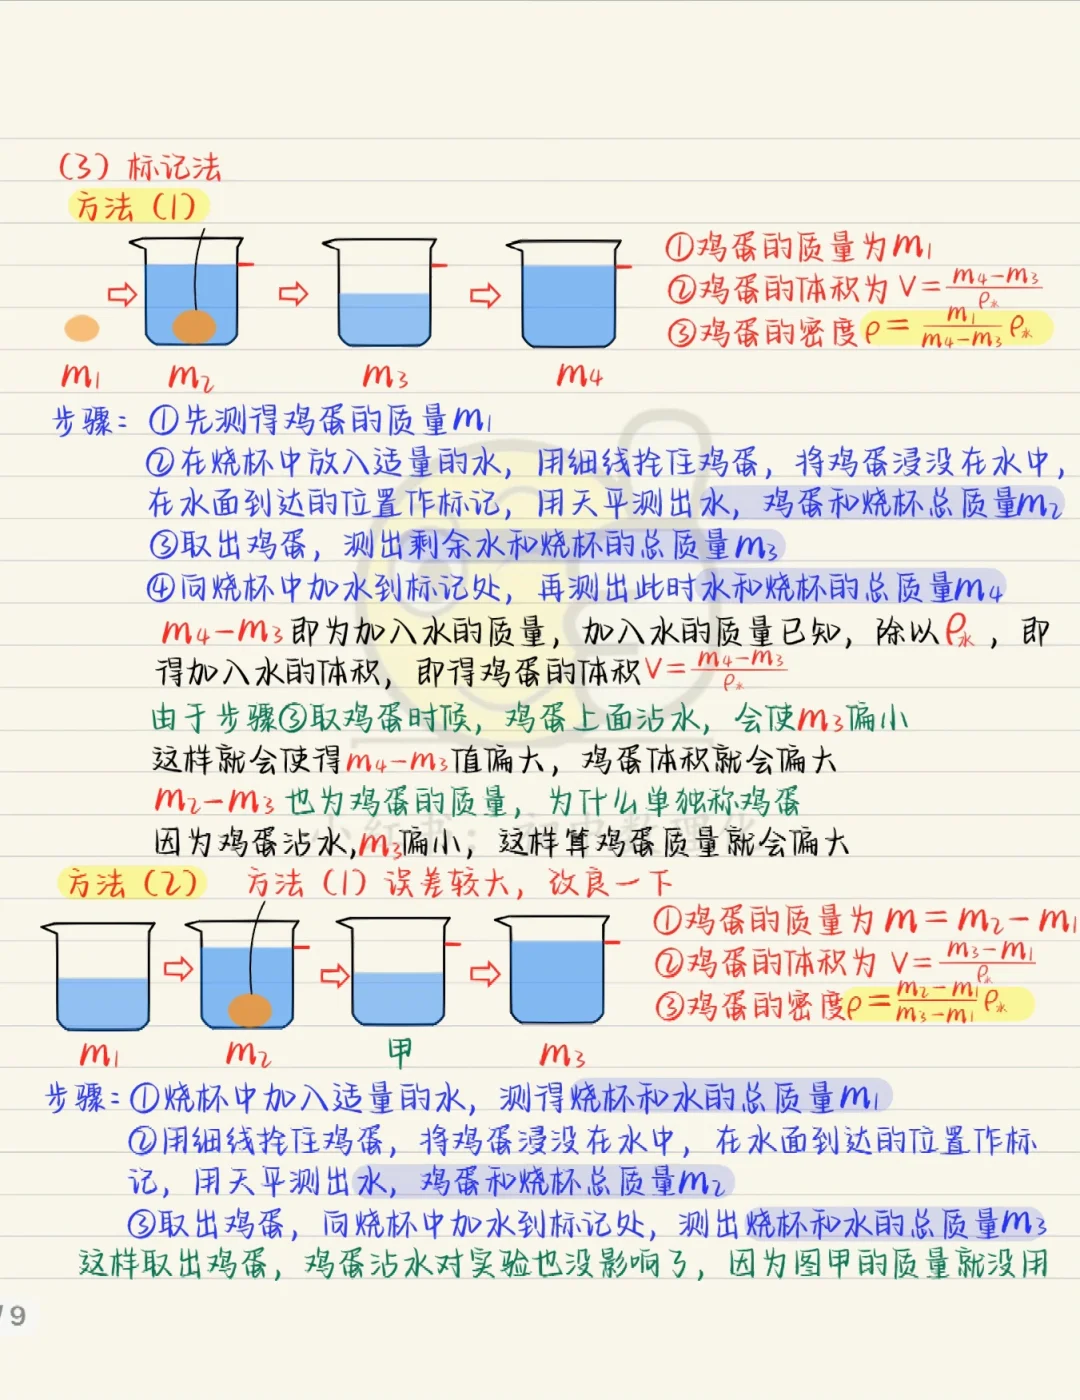 （3）标记法
方法（1）
①鸡蛋的质量为m₁
②鸡蛋的体积为 V=(m₄-m₃)/ρ水
③鸡蛋的密度ρ=m₁/(m₄-m₃)ρ水
m₁ m₂ m₃ m₄
步骤：①先测得鸡蛋的质量m₁
②在烧杯中放入适量的水，用细线拴住鸡蛋，将鸡蛋浸没在水中，
在水面到达的位置作标记，用天平测出水，鸡蛋和烧杯总质量m₂
③取出鸡蛋，测出剩余水和烧杯的总质量m₃
④向烧杯中加水到标记处，再测出此时水和烧杯的总质量m₄
m₄-m₃即为加入水的质量，加入水的质量已知，除以ρ水，即
得加入水的体积，即得鸡蛋的体积V=(m₄-m₃)/ρ水
由于步骤③取鸡蛋时候，鸡蛋上面沾水，会使m₃偏小
这样就会使得m₄-m₃值偏大，鸡蛋体积就会偏大
m₂-m₃也为鸡蛋的质量，为什么单独称鸡蛋
小红书：初中数理化
因为鸡蛋沾水,m₃偏小，这样算鸡蛋质量就会偏大
方法（2） 方法（1）误差较大，改良一下
①鸡蛋的质量为m=m₂-m₁
②鸡蛋的体积为 V=(m₃-m₁)/ρ水
③鸡蛋的密度ρ=(m₂-m₁)/(m₃-m₁)ρ水
m₁ m₂ 甲 m₃
步骤：①烧杯中加入适量的水，测得烧杯和水的总质量m₁
②用细线拴住鸡蛋，将鸡蛋浸没在水中，在水面到达的位置作标
记，用天平测出水，鸡蛋和烧杯总质量m₂
③取出鸡蛋，向烧杯中加水到标记处，测出烧杯和水的总质量m₃
这样取出鸡蛋，鸡蛋沾水对实验也没影响了，因为图甲的质量就没用
/9